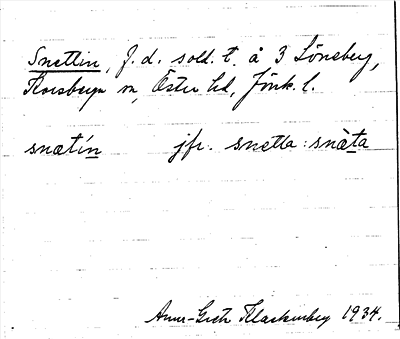 Snettin, f.d. sold. t. å 3 Löneberg,
Korsberga sn, Östra hd, Jönk. l.
snætín jfr. snetta : snæ̀ta
Anna-Greta Klackenberg 1934.